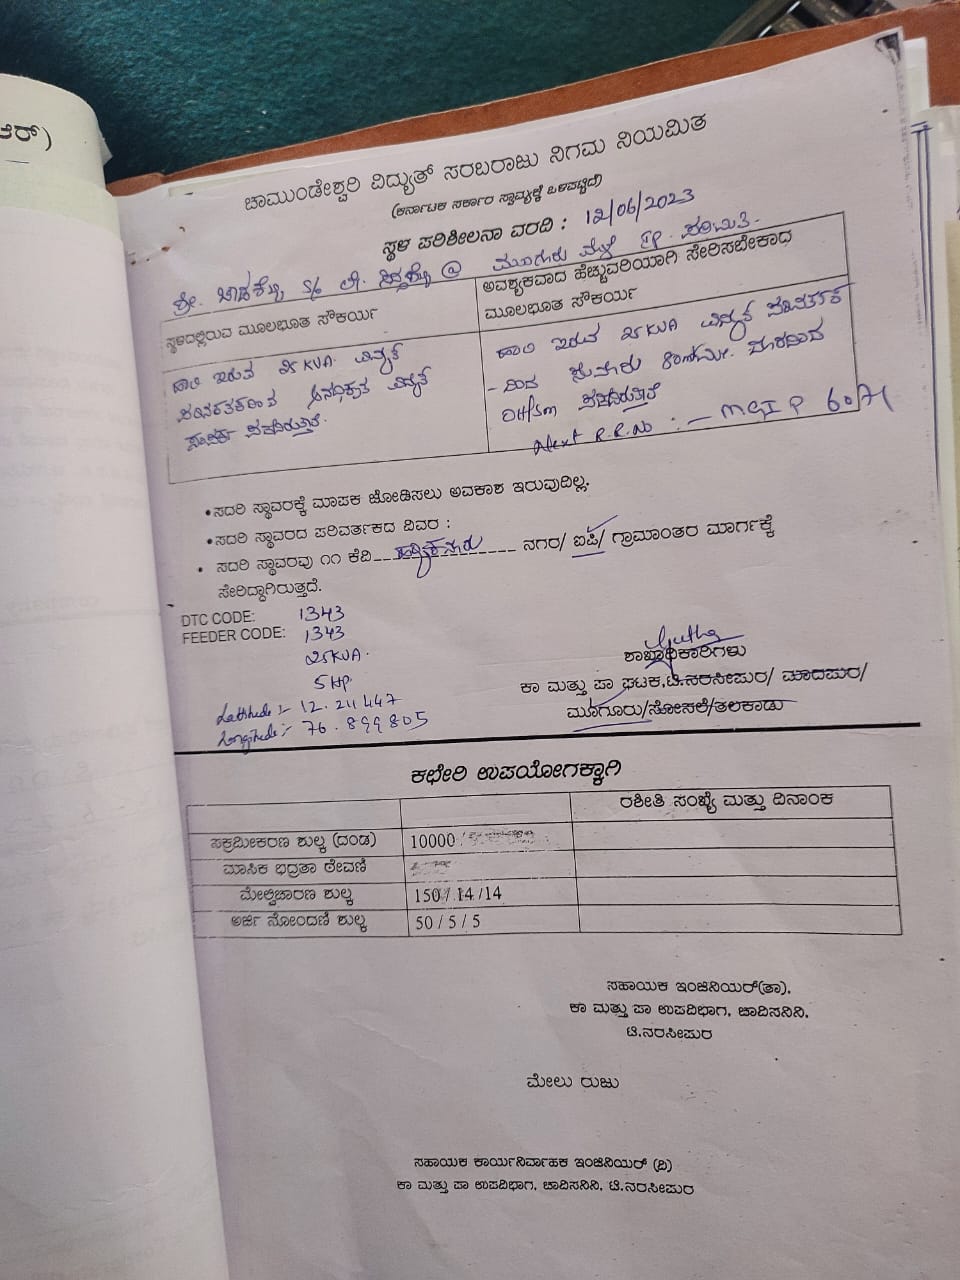 ಆರ್)
ಚಾಮುಂಡೇಶ್ವರಿ ವಿದ್ಯುತ್ ಸರಬರಾಜು ನಿಗಮ ನಿಯಮಿತ
(ಕರ್ನಾಟಕ ಸರ್ಕಾರ ಸ್ವಾಮ್ಯಕ್ಕೆ ಒಳಪಟ್ಟಿದೆ)
ಸ್ಥಳ ಪರಿಶೀಲನಾ ವರದಿ : 12/06/2023
ಶ್ರೀ. S/o ಲೇ. @ ಮೂಗೂರು IP.
ಸ್ಥಳದಲ್ಲಿರುವ ಮೂಲಭೂತ ಸೌಕರ್ಯ
ಅವಶ್ಯಕವಾದ ಹೆಚ್ಚುವರಿಯಾಗಿ ಸೇರಿಸಬೇಕಾದ
ಮೂಲಭೂತ ಸೌಕರ್ಯ
ಹಾಲಿ ಇರುವ 25 KVA. ವಿದ್ಯುತ್
ಪರಿವರ್ತಕದಿಂದ ಅನಧಿಕೃತ ವಿದ್ಯುತ್
ಸಂಪರ್ಕ ಪಡೆದಿರುತ್ತಾರೆ.
ಹಾಲಿ ಇರುವ 25 KVA ವಿದ್ಯುತ್ ಪರಿವರ್ತಕ
- ದಿಂದ ಸುಮಾರು ದೂರದಿಂದ
ಪಡೆದಿರುತ್ತಾರೆ
Next R.R.No : - MGIP 6071
• ಸದರಿ ಸ್ಥಾವರಕ್ಕೆ ಮಾಪಕ ಜೋಡಿಸಲು ಅವಕಾಶ ಇರುವುದಿಲ್ಲ.
• ಸದರಿ ಸ್ಥಾವರದ ಪರಿವರ್ತಕದ ವಿವರ :
• ಸದರಿ ಸ್ಥಾವರವು ೧೧ ಕೆವಿ ನಗರ/ ಐಪಿ/ ಗ್ರಾಮಾಂತರ ಮಾರ್ಗಕ್ಕೆ
ಸೇರಿದ್ದಾಗಿರುತ್ತದೆ.
DTC CODE: 1343
FEEDER CODE: 1343
25KVA.
5 HP.
Latitude :- 12.211447
Longitude :- 76.899805
ಶಾಖಾಧಿಕಾರಿಗಳು
ಕಾ ಮತ್ತು ಪಾ ಘಟಕ,ಟಿ.ನರಸೀಪುರ/ ಮಾದಪುರ/
ಮೂಗೂರು/ಸೋಸಲೆ/ತಲಕಾಡು
ಕಛೇರಿ ಉಪಯೋಗಕ್ಕಾಗಿ
ರಶೀತಿ ಸಂಖ್ಯೆ ಮತ್ತು ದಿನಾಂಕ
ಸಕ್ರಮೀಕರಣ ಶುಲ್ಕ (ದಂಡ) 10000
ಮಾಸಿಕ ಭದ್ರತಾ ಠೇವಣಿ
ಮೇಲ್ವಿಚಾರಣ ಶುಲ್ಕ 150 / 14 /14
ಅರ್ಜಿ ನೋಂದಣಿ ಶುಲ್ಕ 50 / 5 / 5
ಸಹಾಯಕ ಇಂಜಿನಿಯರ್(ತಾ).
ಕಾ ಮತ್ತು ಪಾ ಉಪವಿಭಾಗ, ಚಾವಿಸನಿನಿ.
ಟಿ.ನರಸೀಪುರ
ಮೇಲು ರುಜು
ಸಹಾಯಕ ಕಾರ್ಯನಿರ್ವಾಹಕ ಇಂಜಿನಿಯರ್ (ವಿ)
ಕಾ ಮತ್ತು ಪಾ ಉಪವಿಭಾಗ, ಚಾವಿಸನಿನಿ, ಟಿ.ನರಸೀಪುರ